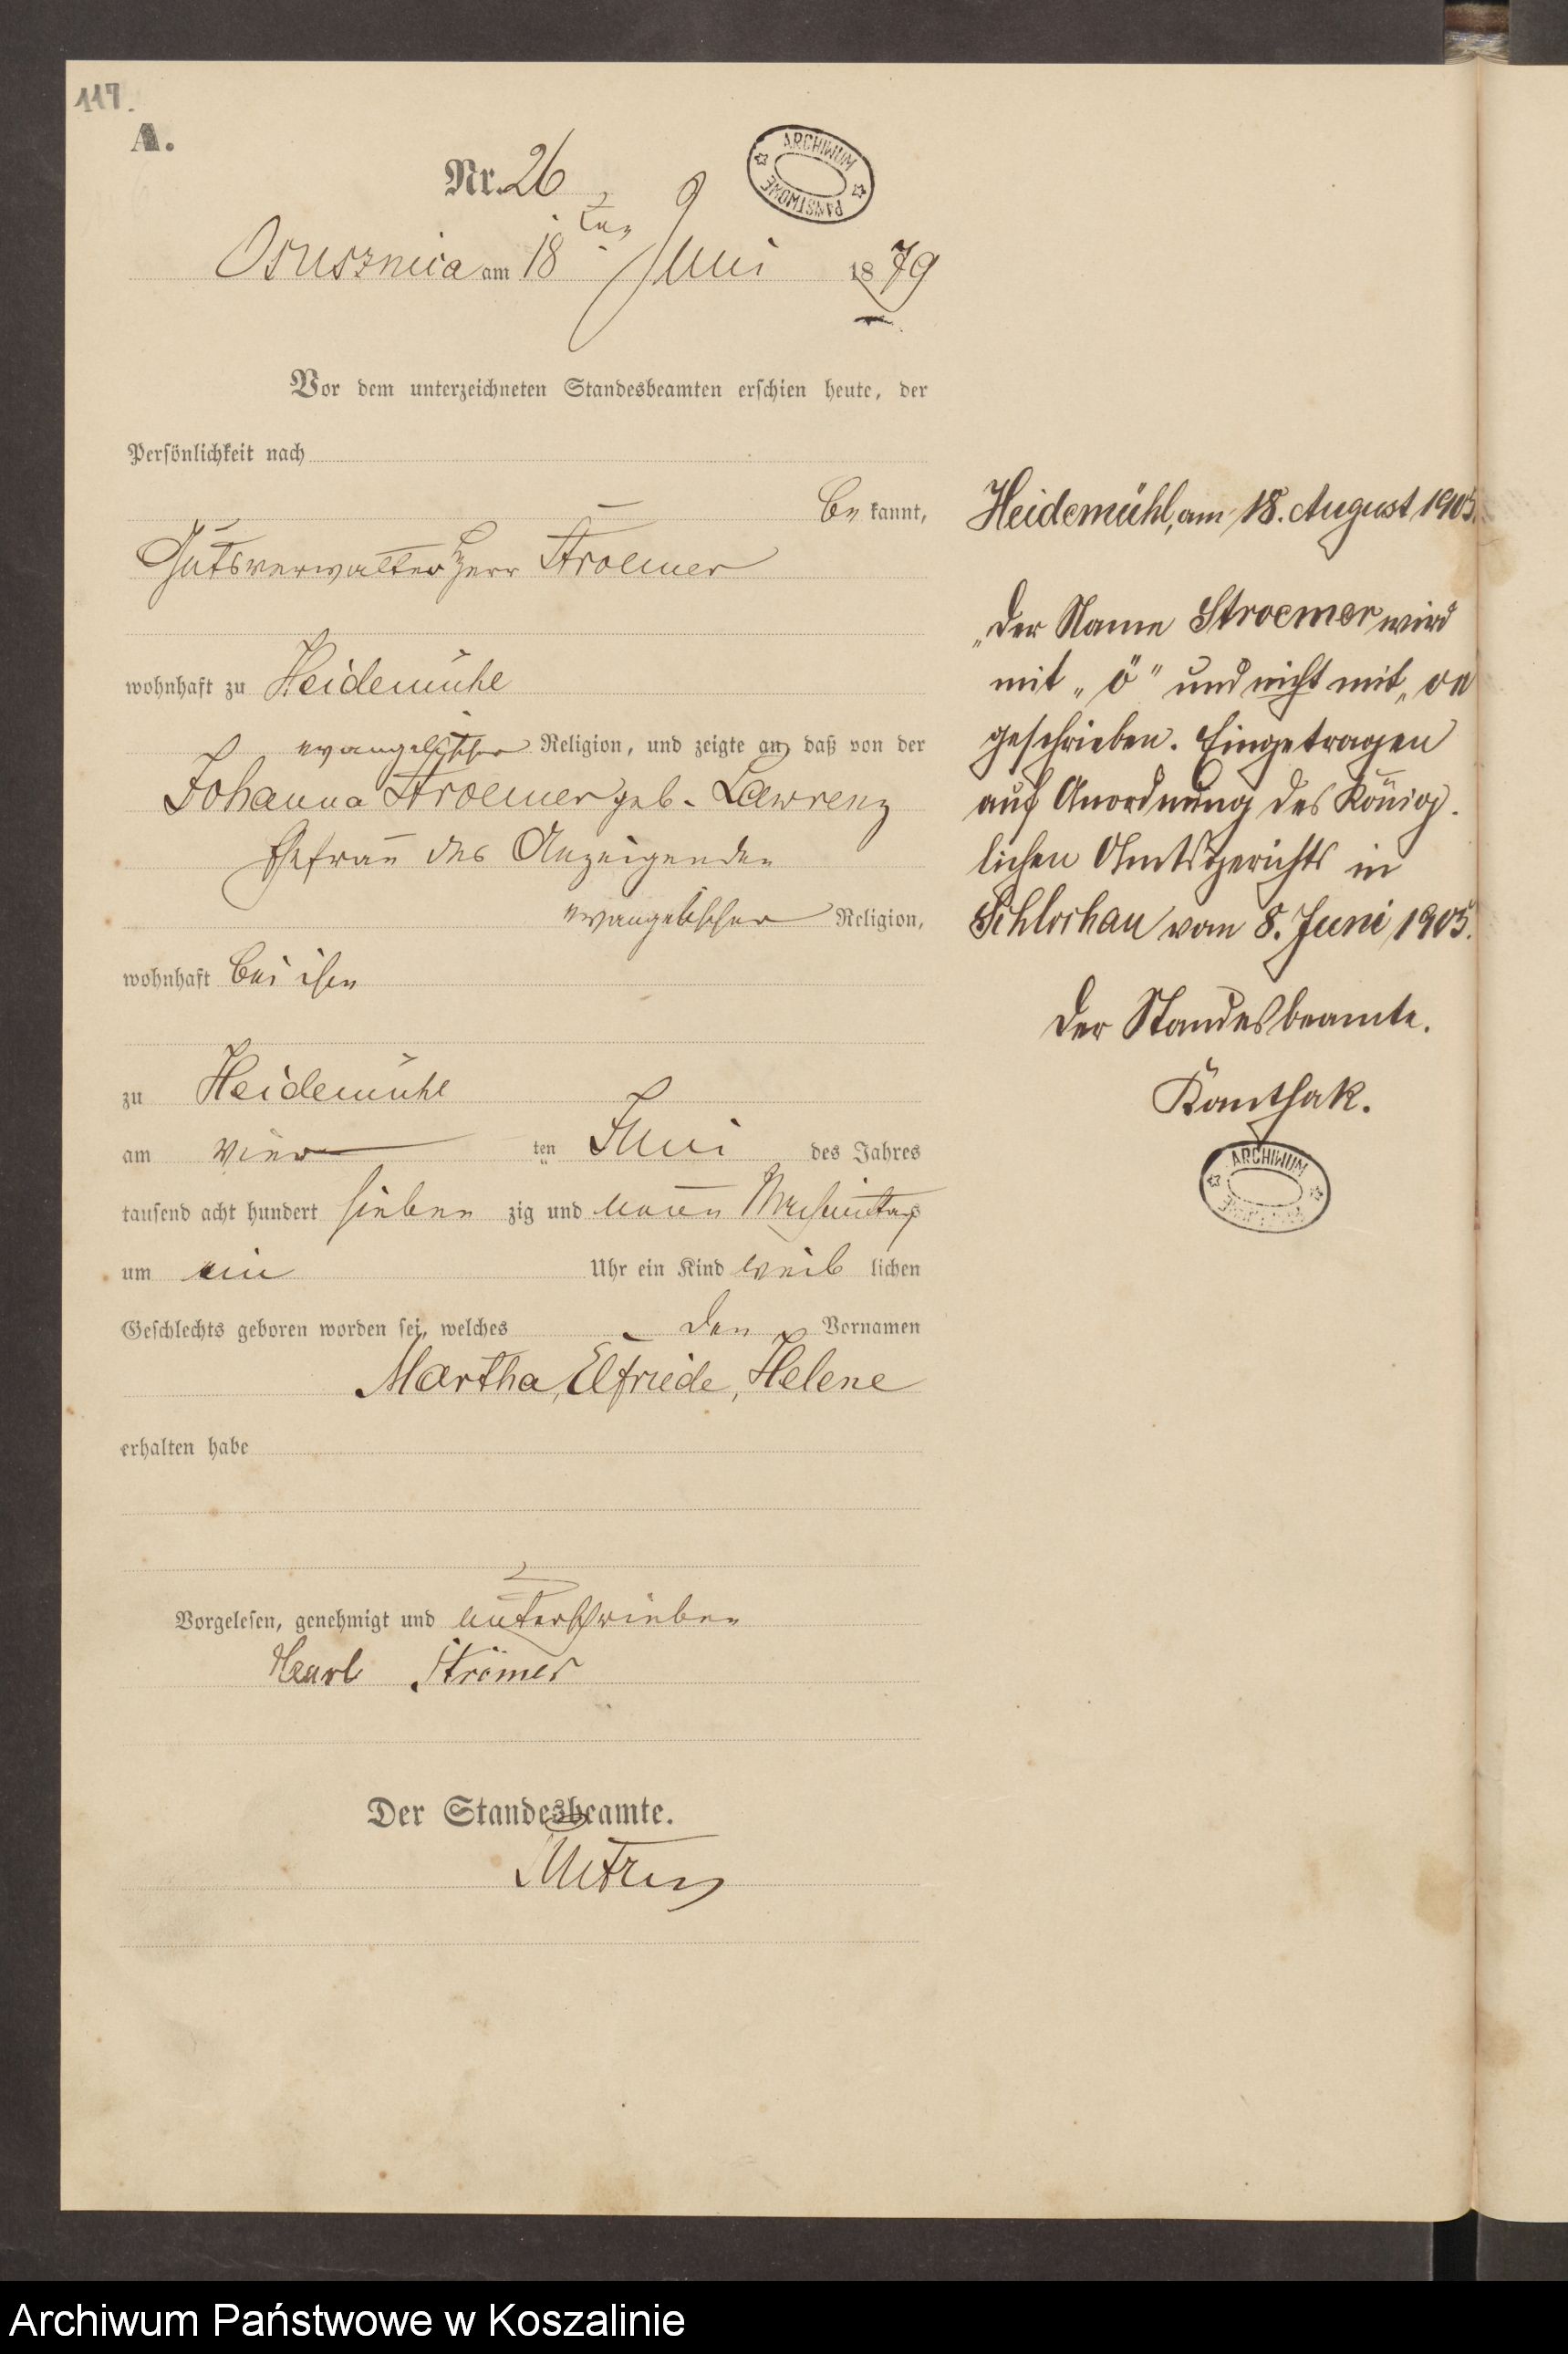 117.
A.
Nr. 26
ARCHIWUM PAŃSTWOWE
Osusznica am 18ten Juni 1879
Vor dem unterzeichneten Standesbeamten erschien heute, der
Persönlichkeit nach
be kannt,
Gutsverwalter Herr Stroemer
wohnhaft zu Heidemühle
evangelischer Religion, und zeigte an, daß von der
Johanna Stroemer geb. Lawrenz
Ehefrau des Anzeigenden
evangelischer Religion,
wohnhaft bei ihm
zu Heidemühl
am vier ten Juni des Jahres
tausend acht hundert sieben zig und neun Nachmittags
um ein Uhr ein Kind weib lichen
Geschlechts geboren worden sei, welches den Vornamen
Martha, Elfriede, Helene
erhalten habe
Vorgelesen, genehmigt und unterschrieben
Karl Strömer
Der Standesbeamte.
Heidemühl, am 18. August 1905.
„Der Name Stroemer wird
mit „ö" und nicht mit „oe
geschrieben. Eingetragen
auf Anordnung des König-
lichen Amtsgerichts in
Schlochau vom 8. Juni 1905.
Der Standesbeamte.
Kanthak.
ARCHIWUM
Archiwum Państwowe w Koszalinie